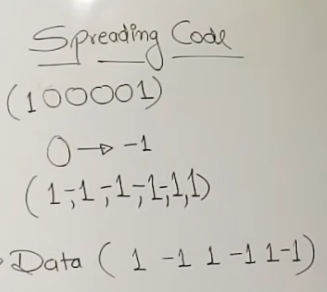 Spreading Code
(100001)
0 → -1
(1,-1,-1,-1,-1,1)
Data ( 1 -1 1 -1 1 -1)